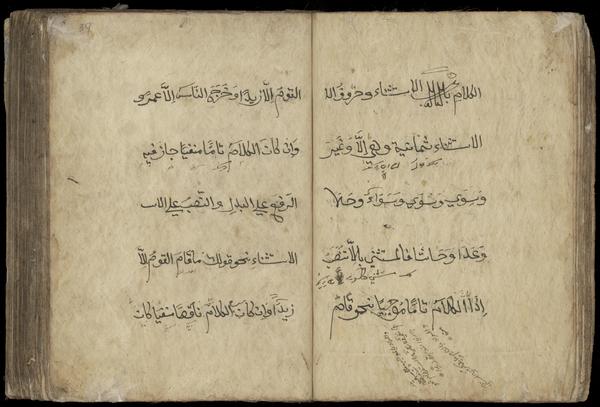 الكلام باب الاستثناء وحروف الا
الاستثناء ثمانية وهي إلَّا وغَير
وسِوى وسُوى وسَواء وخلا
وعدا وحاشا فالمستثنى بالاَّ ينصب
اِذاَ الكلام تامًا موجبا نحو قام
القوم الاَّ زيدًا وخرج الناس اِلاَّ عمرو
وَان كان الكلام تامًا منفيا جاز فيه
الرفع على البدل والنَّصب على الاس
الاستثناء نحو قولك ما قام القوم الاَّ
زيدًا وان كان الكلام ناقصا منفيا كان